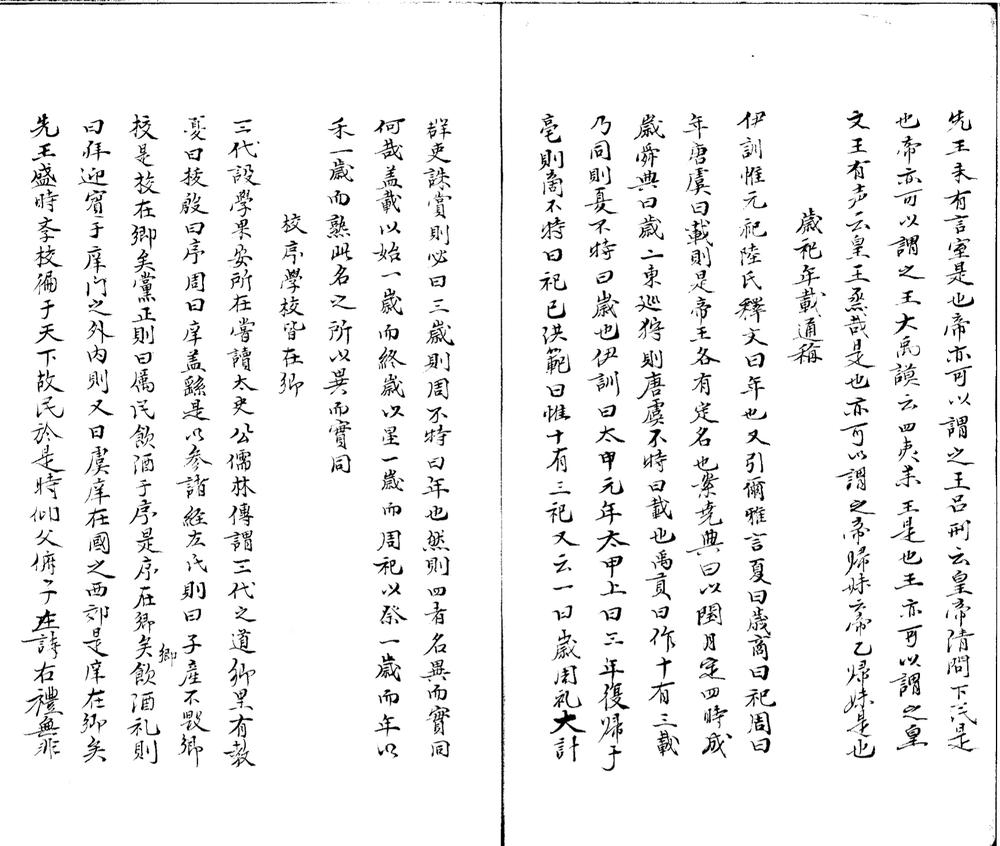 先王未有言室是也帝亦可以謂之王吕刑云皇帝清問下民是
也帝亦可以謂之王大禹謨云四夷来王是也王亦可以謂之皇
文王有声云皇王烝哉是也亦可以謂之帝歸妹云帝乙歸妹是也
歳祀年載通稱
伊訓惟元祀陸氏釋文曰年也又引爾雅言夏曰歳商曰祀周曰
年唐虞曰載則是帝王各有定名也案堯典曰以閏月定四時成
歳舜典曰歳二東巡狩則唐虞不特曰載也禹貢曰作十有三載
乃同則夏不特曰歳也伊訓曰太甲元年太甲上曰三年復歸于
亳則商不特曰祀已洪範曰惟十有三祀又云一曰歳周礼大計
群吏誅賞則必曰三歳則周不特曰年也然則四者名異而實同
何哉盖載以始一歳而終歳以星一歳而周祀以祭一歳而年以
禾一歳而熟此名之所以異而實同
校序學校皆在鄉
三代設學果安所在嘗讀太史公儒林傳謂三代之道鄉里有教
夏曰校殷曰序周曰庠盖繇是以参諸經左氏則曰子産不毁鄉
校是校在鄉矣黨正則曰属民飲酒于序是序在鄉矣鄉飲酒礼則
曰拜迎賓于庠门之外内則又曰虞庠在國之西郊是庠在鄉矣
先王盛時孝校徧于天下故民於是時仰父俯子左詩右禮無非